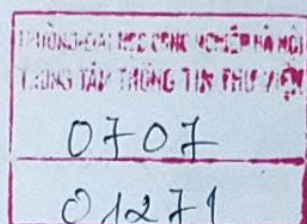 TRƯỜNG ĐẠI HỌC CÔNG NGHIỆP HÀ NỘI
TRUNG TÂM THÔNG TIN THƯ VIỆN
0707
01271